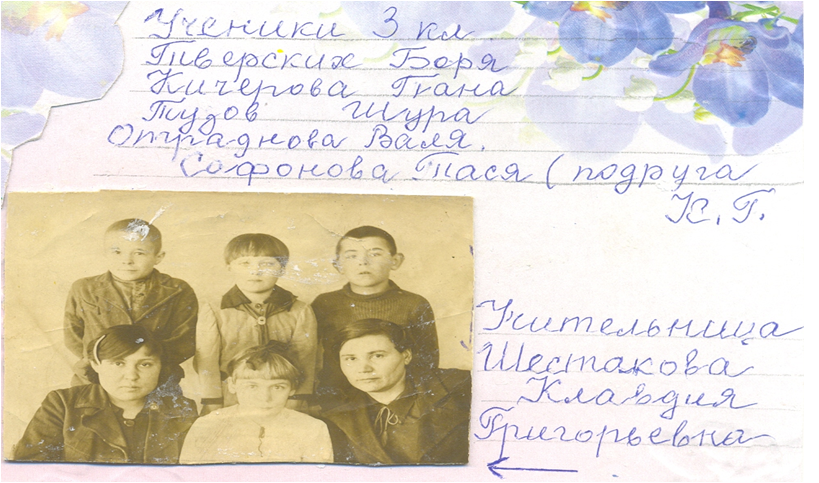 Ученики 3 кл
Тиверских Боря
Кичерова Гкана
Тузов Шура
Отраднова Валя.
Сафонова Тася (подруга
К. Г.
Учительница
Шестакова
Клавдия
Григорьевна